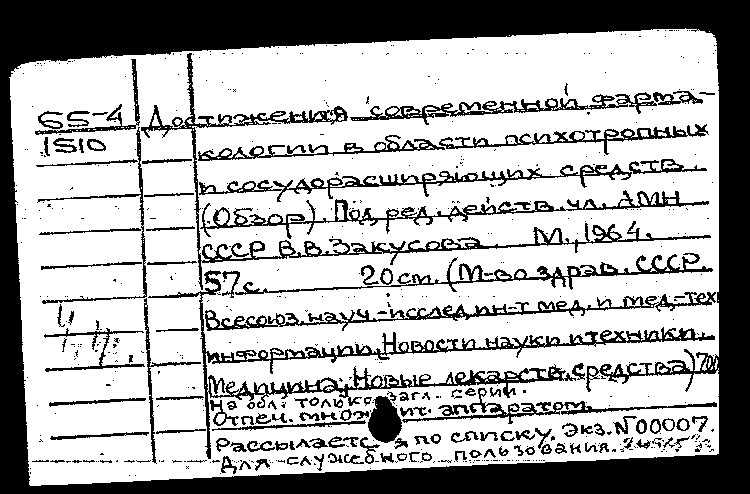 65-4 Достижения современной фарма-
1510
кологии в области психотропных
и сосудорасширяющих средств.
(Обзор). Под ред. действ. чл. АМН
СССР В.В.Закусова. М., 1964.
57с. 20см. (М-во здрав. СССР.
Всесоюз. науч.-исслед. ин-т мед. и мед.-техн
информации. Новости науки и техники.
Медицина. Новые лекарств. средства) 700
На обл. только загл. серии.
Отпеч. множит. аппаратом.
Рассылается по списку. Экз. №00007.
Для служебного пользования.